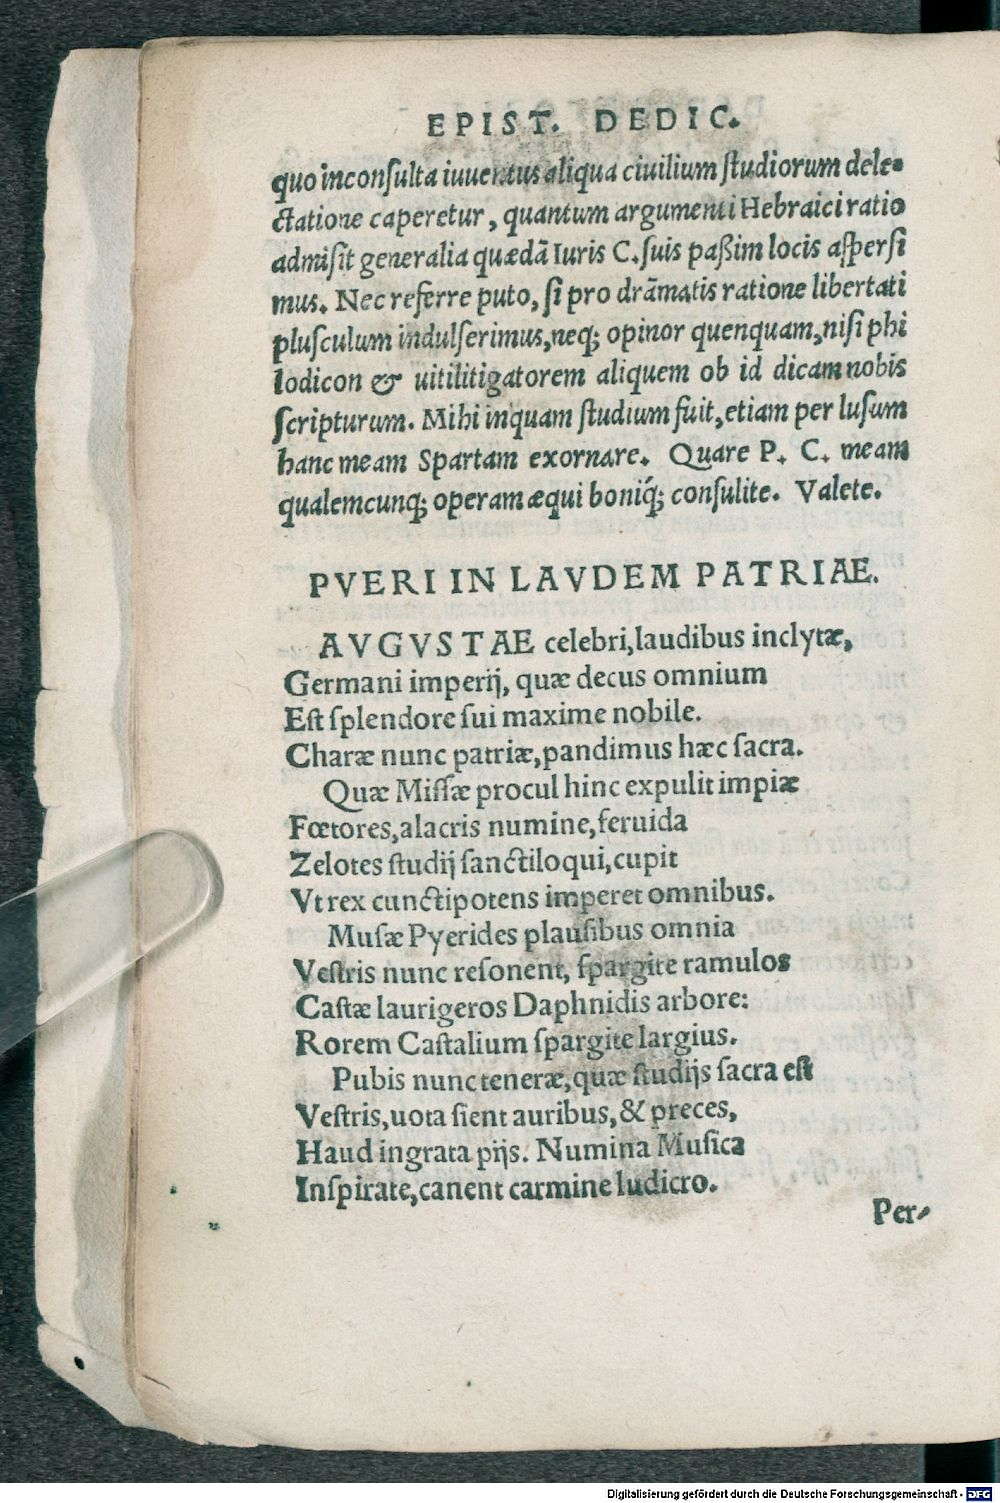 EPIST. DEDIC.
quo inconſulta iuuentus aliqua ciuilium ſtudiorum dele-
ctatione caperetur, quantum argumenti Hebraici ratio
admiſit generalia quædã Iuris C. ſuis paßim locis aſperſi
mus. Nec referre puto, ſi pro drãmatis ratione libertati
pluſculum indulſerimus, neq; opinor quenquam, niſi phi
lodicon & uitilitigatorem aliquem ob id dicam nobis
ſcripturum. Mihi inquam ſtudium fuit, etiam per luſum
hanc meam Spartam exornare. Quare P. C. meam
qualemcunq; operam æqui boniq́; conſulite. Valete.
PVERI IN LAVDEM PATRIAE.
AVGVSTAE celebri, laudibus inclytæ,
Germani imperij, quæ decus omnium
Eſt ſplendore ſui maxime nobile.
Charæ nunc patriæ, pandimus hæc ſacra.
Quæ Miſſæ procul hinc expulit impiæ
Fœtores, alacris numine, feruida
Zelotes ſtudij ſanctiloqui, cupit
Vt rex cunctipotens imperet omnibus.
Muſæ Pyerides plauſibus omnia
Veſtris nunc reſonent, ſpargite ramulos
Caſtæ laurigeros Daphnidis arbore:
Rorem Caſtalium ſpargite largius.
Pubis nunc teneræ, quæ ſtudijs ſacra eſt
Veſtris, uota ſient auribus, & preces,
Haud ingrata pijs. Numina Muſica
Inſpirate, canent carmine ludicro.
Per-
Digitalisierung gefördert durch die Deutsche Forschungsgemeinschaft - DFG